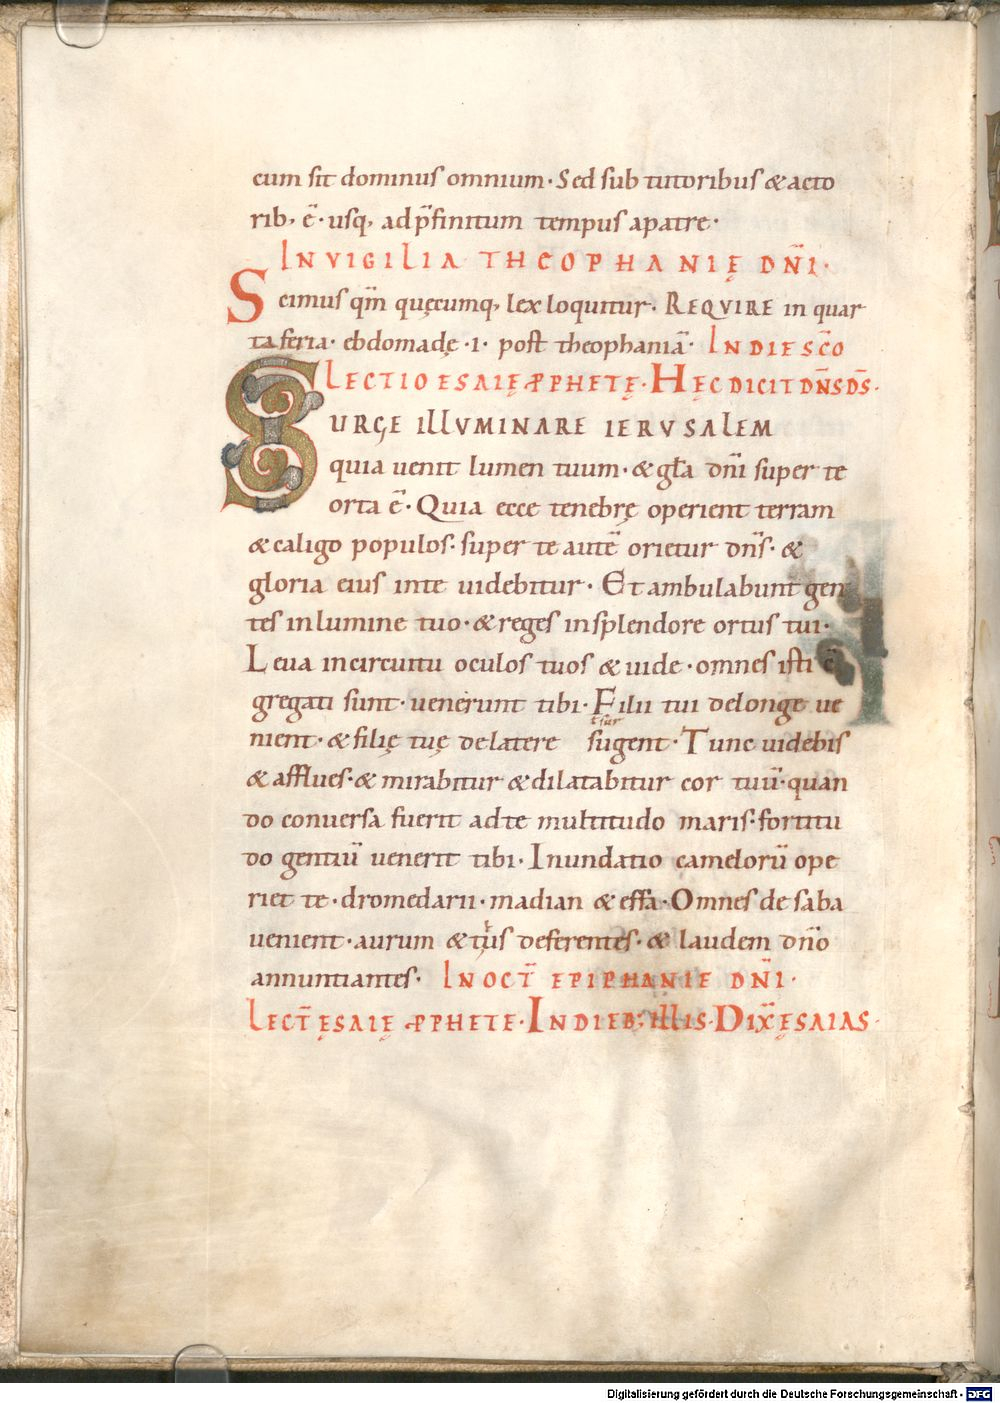 cum sit dominus omnium· Sed sub tutoribus & acto
rib; ē· usq; ad p̄finitum tempus a patre·
IN VIGILIA THEOPHANIĘ DN̄I·
Scimus qm̄ quęcumq; lex loquitur· REQVIRE in quar
ta feria· ebdomadę ·I· post theophaniā· IN DIE SC̄O
LECTIO ESAIĘ PPHETĘ· HĘC DICIT DN̄S DS̄·
SURGE ILLVMINARE IERVSALEM
quia uenit lumen tuum· & gła dn̄i super te
orta ē· Quia ecce tenebrę operient terram
& caligo populos· super te autē orietur dn̄s· &
gloria eius in te uidebitur· Et ambulabunt gen
tes in lumine tuo· & reges in splendore ortus tui·
Leua in circuitu oculos tuos & uide· omnes isti c̄
gregati sunt· uenerunt tibi· Filii tui de longe ue
nient· & filię tuę de latere ł sur sugent· Tunc uidebis
& afflues· & mirabitur & dilatabitur cor tuū· quan
do conuersa fuerit ad te multitudo maris· fortitu
do gentiū uenerit tibi· Inundatio camelorū ope
riet te· dromedarii· madian & effa· Omnes de saba
uenient· aurum & tus deferentes· & laudem dn̄o
annuntiantes· IN OCT̄ EPIPHANIE DN̄I·
LECT̄ ĘSAIĘ PPHETE· IN DIEB; ILLIS· DIX̄ ĘSAIAS·
Digitalisierung gefördert durch die Deutsche Forschungsgemeinschaft · DFG